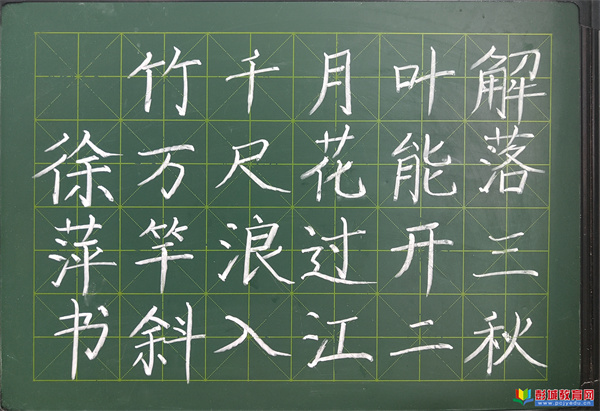 解落三秋
叶能开二
月花过江
千尺浪入
竹万竿斜
徐萍书
彭城教育网
www.pcjyedu.cn